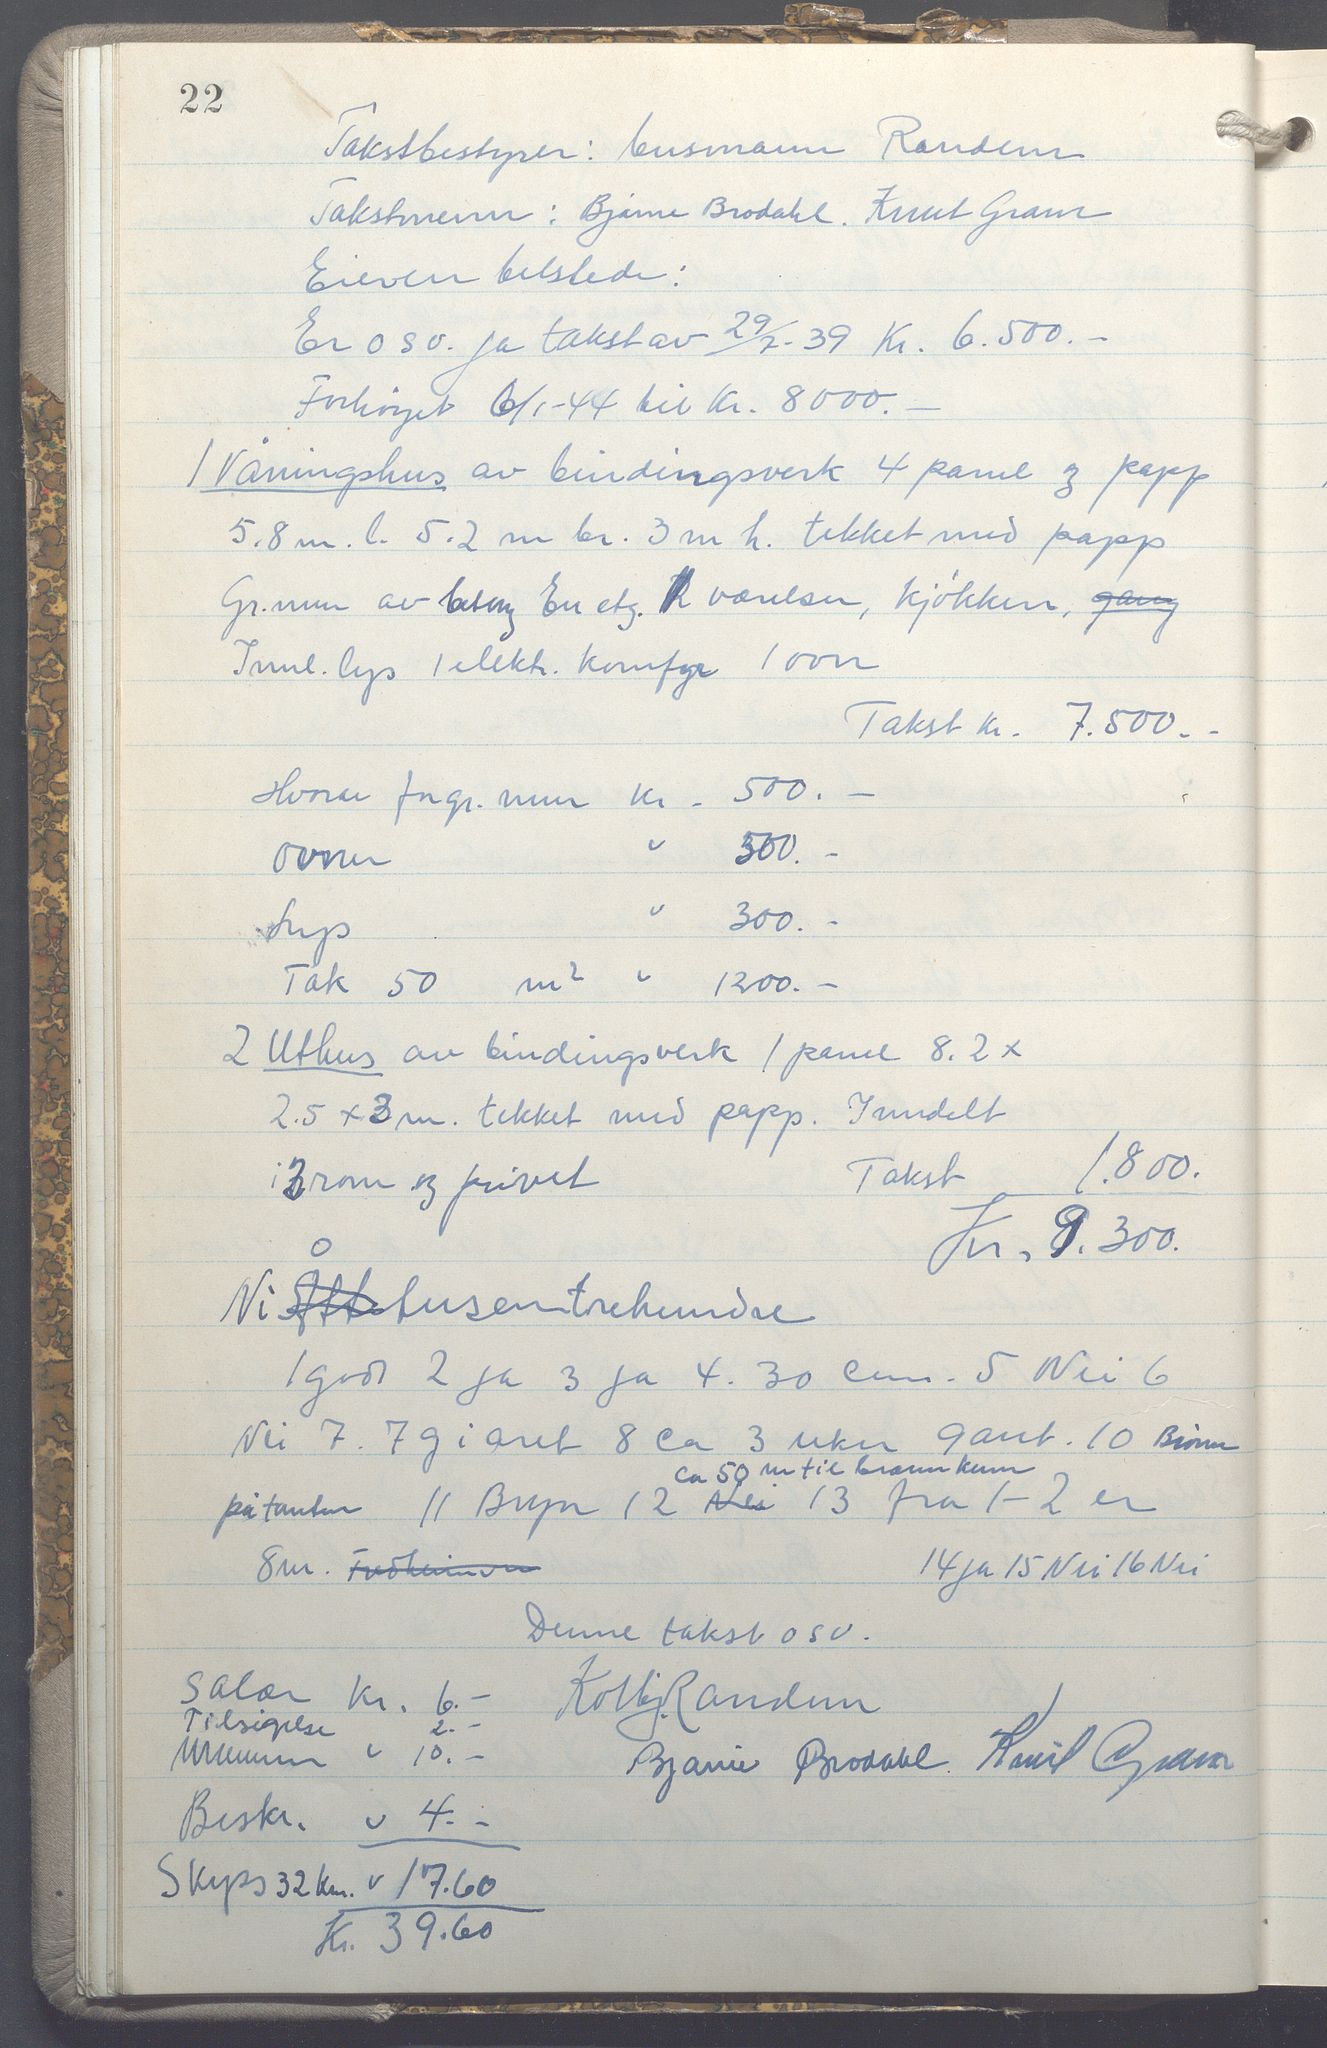 22
Takstbestyrer: lensmann Randem
Takstmenn: Bjarne Brodahl. Knut Gram
Eieren tilstede:
Er osv. ja takst av 29/7-39 Kr. 6.500.-
Forhöyet 6/1-44 til Kr. 8000.-
1 Våningshus av bindingsverk 4 panel og papp
5.8 m. l. 5.2 m br. 3 m h. tekket med papp
Gr.mur av betong En etg. 2 værelser, kjökken, gang
Innl. lys 1 elektr. komfyr 1 ovn
Takst kr. 7.500.-
Hvorav for gr. mur kr. 500.-
ovner " 300.-
Lys " 300.-
Tak 50 m2 " 1200.-
2 Uthus av bindingsverk 1 panel 8.2 x
2.5 x 3 m. tekket med papp. Inndelt
i 3 rom og privet Takst 1.800.
Kr. 9.300.
Ni Åtte tusentrehundre
1 god 2 ja 3 ja 4. 30 cm. 5 Nei 6
Nei 7. 7 g i året 8 ca 3 uker 9 ant. 10 Brönn
ca 50 m til brannkum
på tomten 11 Bryn 12 Nei 13 fra 1-2 er
8 m. 14 ja 15 Nei 16 Nei
Denne takst osv.
Salær Kr. 6.- Kolbj. Randem
Tilsigelse 2.-
" 10.- Bjarne Brodahl. Knut Gram
Beskr. " 4.-
Skyss 32 km. " 17.60
Kr. 39.60